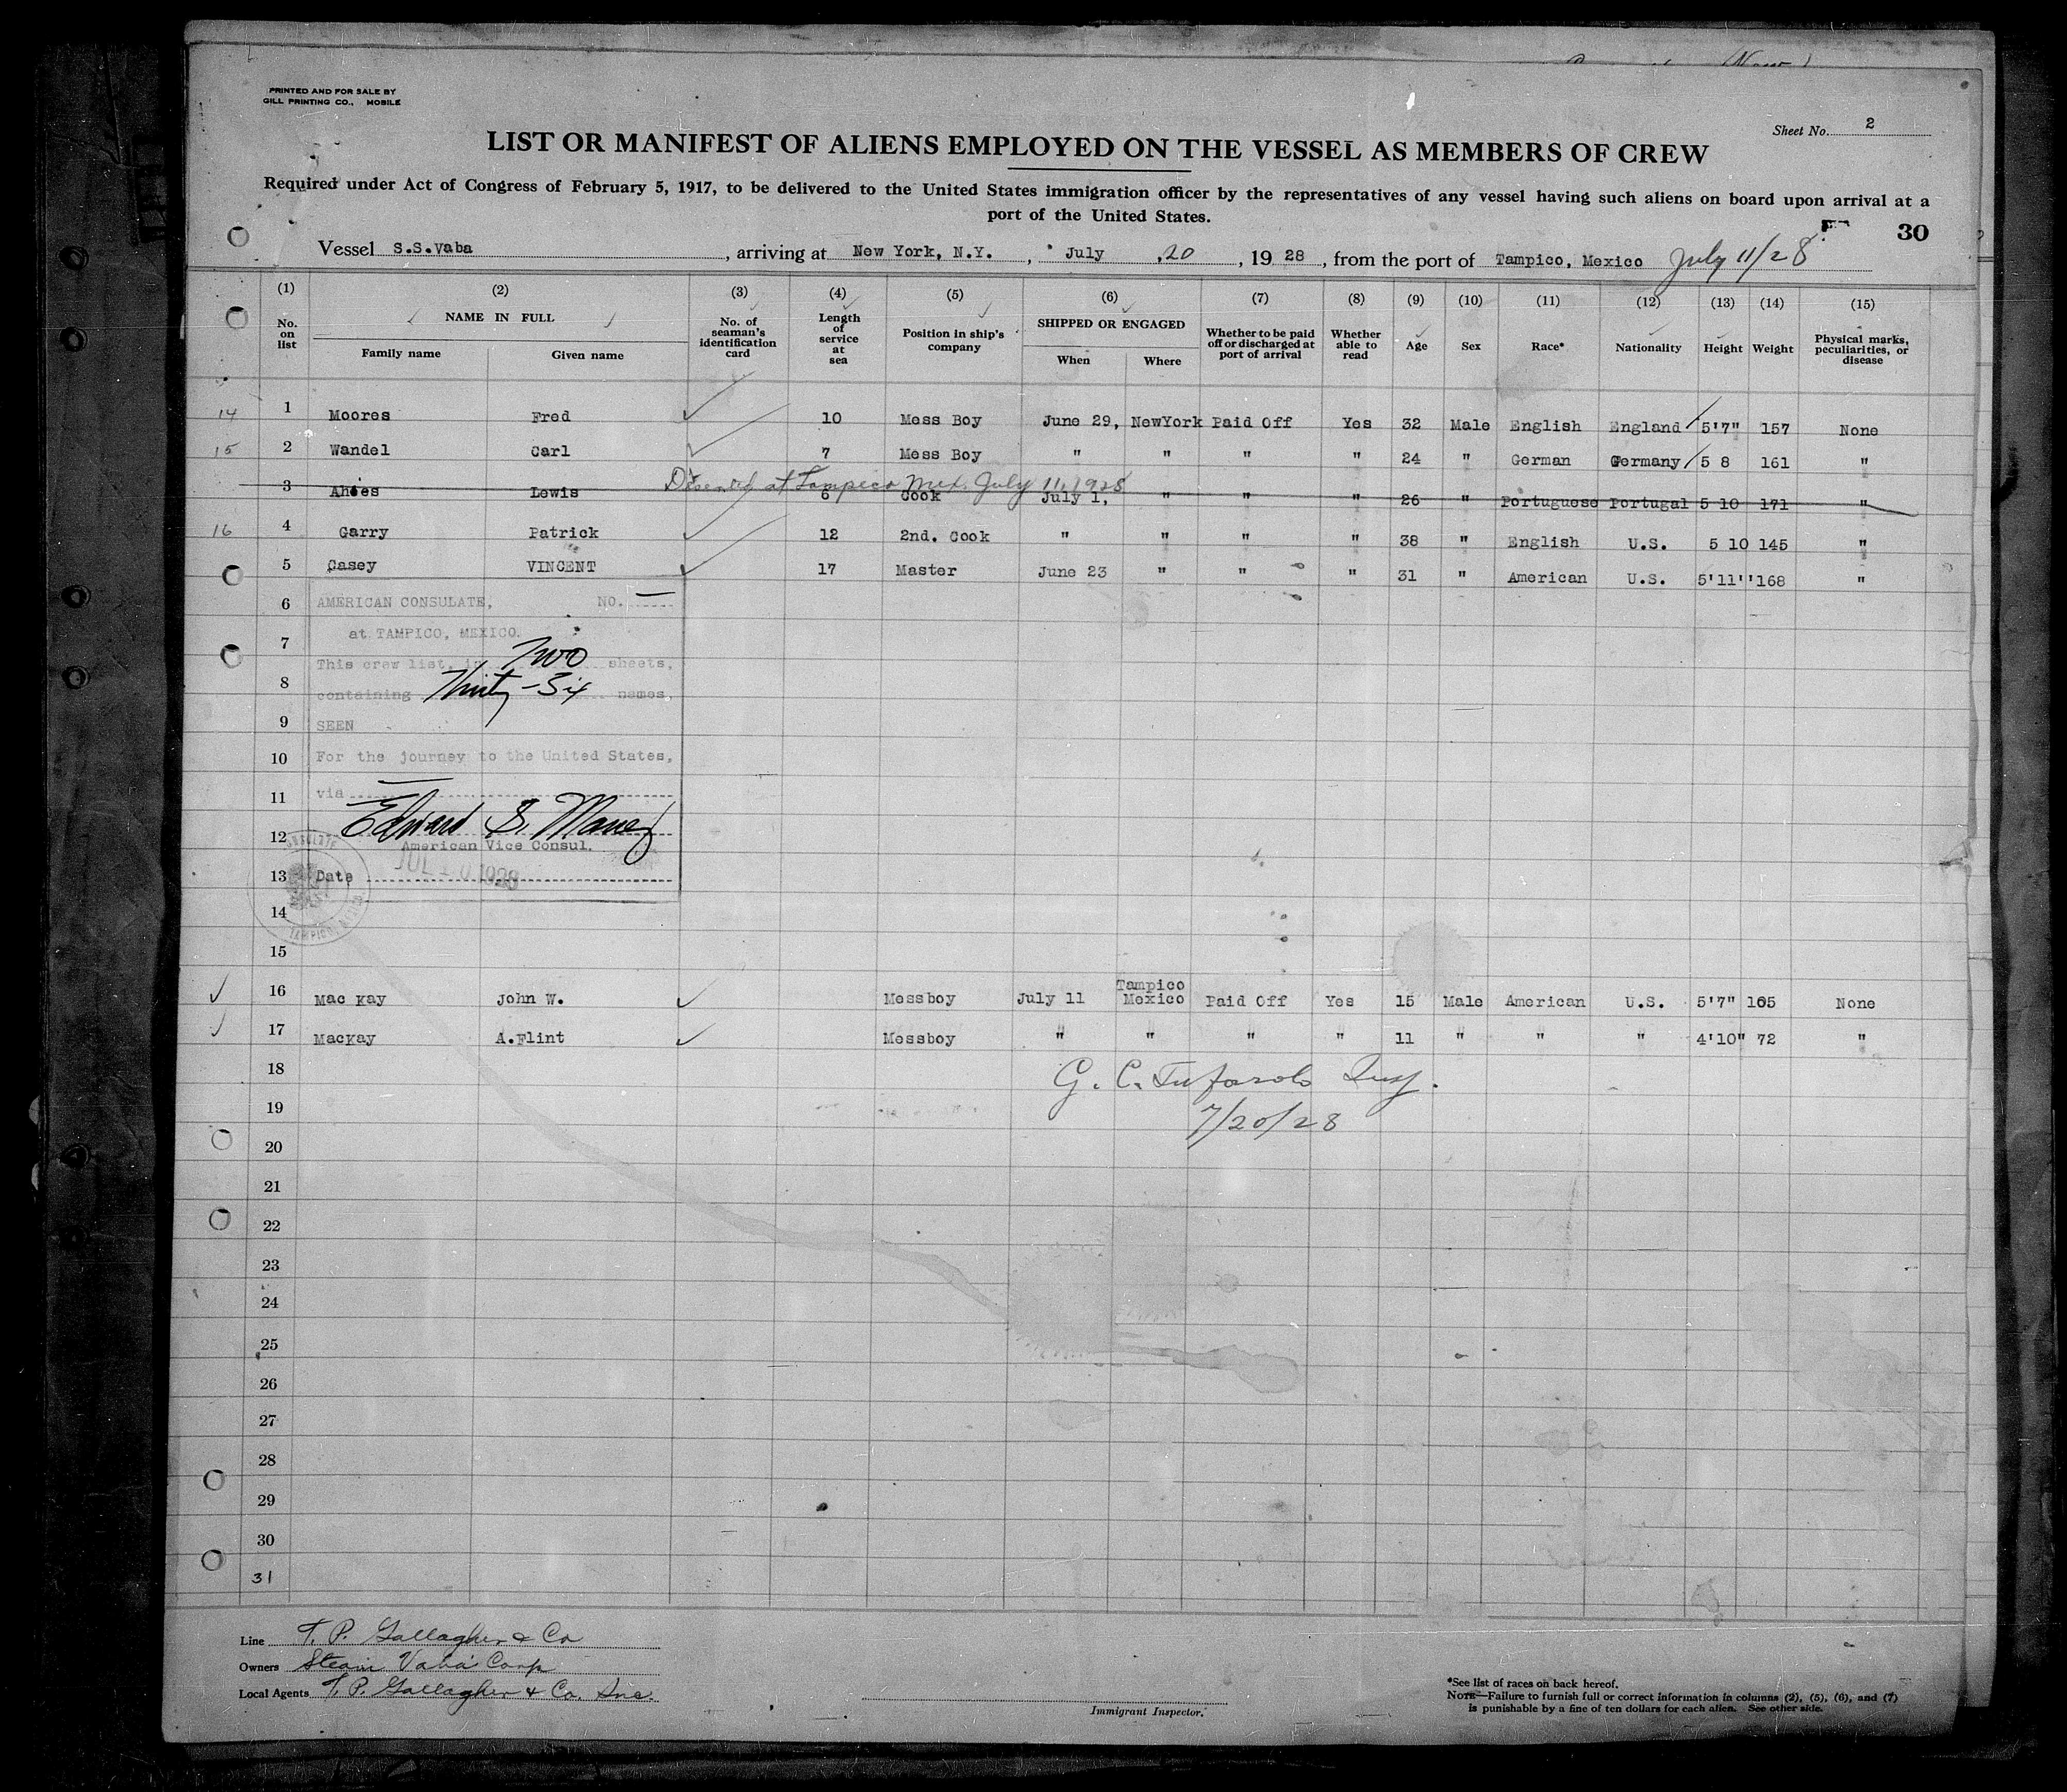 PRINTED AND FOR SALE BY
GILL PRINTING CO., MOBILE
Sheet No. 2
LIST OR MANIFEST OF ALIENS EMPLOYED ON THE VESSEL AS MEMBERS OF CREW
Required under Act of Congress of February 5, 1917, to be delivered to the United States immigration officer by the representatives of any vessel having such aliens on board upon arrival at a
port of the United States.
30
Vessel S.S.Vaba, arriving at New York, N.Y., July ,20, 19 28, from the port of Tampico, Mexico July 11/28
(1) (2) (3) (4) (5) (6) (7) (8) (9) (10) (11) (12) (13) (14) (15)
No. on list NAME IN FULL Family name Given name No. of seaman's identification card Length of service at sea Position in ship's company SHIPPED OR ENGAGED When Where Whether to be paid off or discharged at port of arrival Whether able to read Age Sex Race* Nationality Height Weight Physical marks, peculiarities, or disease
14 1 Moores Fred 10 Mess Boy June 29, NewYork Paid Off Yes 32 Male English England 5'7" 157 None
15 2 Wandel Carl 7 Mess Boy " " " " 24 " German Germany 5 8 161 "
Deserted at Tampico Mex. July 11, 1928
3 Lewis 6 Cook July 1, " " " 26 " Portuguese Portugal 5 10 171 "
16 4 Garry Patrick 12 2nd. Cook " " " " 38 " English U.S. 5 10 145 "
5 Casey VINCENT 17 Master June 23 " " " 31 " American U.S. 5'11" 168 "
6 AMERICAN CONSULATE, NO. —
7 at TAMPICO, MEXICO.
This crew list, in Two sheets,
8 containing Thirty-Six names,
9 SEEN
10 For the journey to the United States,
11 via
12 Edward S. Maney
American Vice Consul.
13 Date JUL 10 1928
CONSULATE
TAMPICO, MEXICO
14
15
16 Mac Kay John W. Messboy July 11 Tampico Mexico Paid Off Yes 15 Male American U.S. 5'7" 105 None
17 MacKay A.Flint Messboy " " " " 11 " " " 4'10" 72 "
18 G. C. Insp.
19 7/20/28
20
21
22
23
24
25
26
27
28
29
30
31
Line T. P. Gallagher & Co
Owners Steam Vaba Corp
Local Agents T. P. Gallagher & Co. Inc.
Immigrant Inspector.
*See list of races on back hereof.
NOTE—Failure to furnish full or correct information in columns (2), (5), (6), and (7)
is punishable by a fine of ten dollars for each alien. See other side.